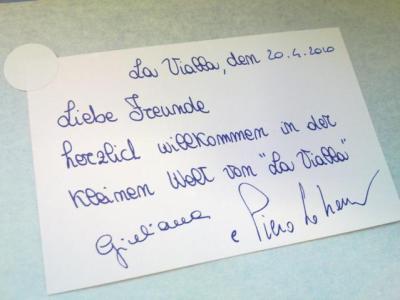 La Vialla, den 20.4.2010
Liebe Freunde
herzlich willkommen in der
kleinen Welt von "La Vialla"
Giuliana
e Piero Lo Franco